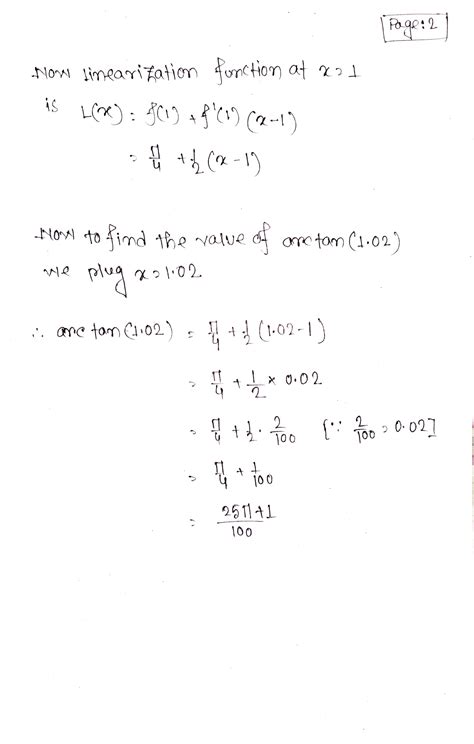 Page: 2
Now linearization function at x = 1
is L(x) = f(1) + f'(1) (x-1)
= π/4 + 1/2 (x-1)
Now to find the value of arc tan(1.02)
we plug x = 1.02
∴ arc tan(1.02) = π/4 + 1/2 (1.02-1)
= π/4 + 1/2 × 0.02
= π/4 + 1/2 · 2/100 [∵ 2/100 = 0.02]
= π/4 + 1/100
= 25π+1/100